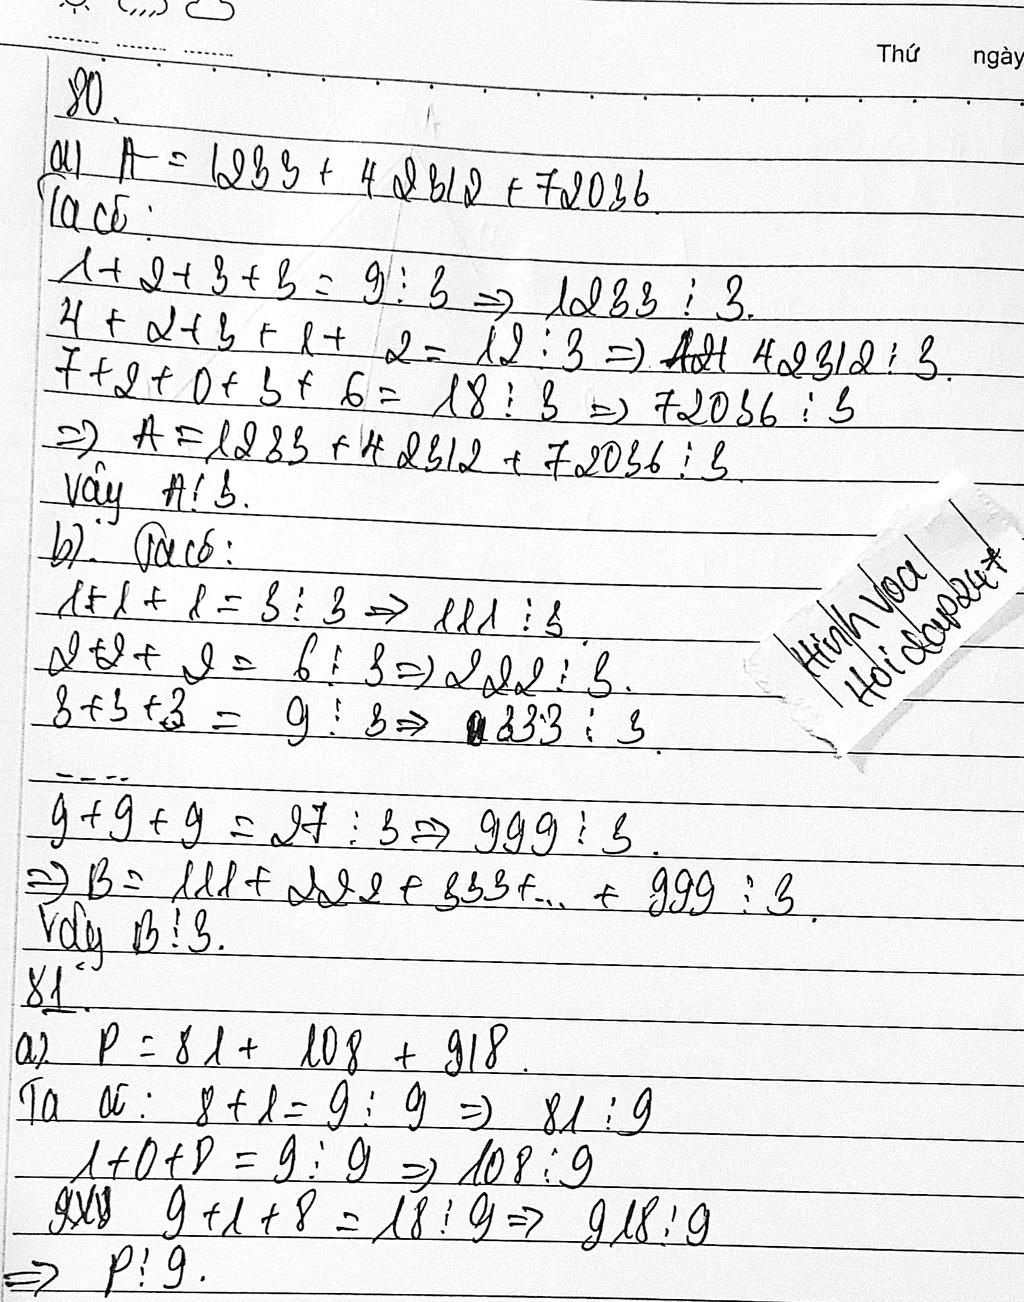 Thứ ngày
80.
a) A = 1233 + 42312 + 72036
Ta có:
1 + 2 + 3 + 3 = 9 ⋮ 3 => 1233 ⋮ 3.
4 + 2 + 3 + 1 + 2 = 12 ⋮ 3 => 42312 ⋮ 3.
7 + 2 + 0 + 3 + 6 = 18 ⋮ 3 => 72036 ⋮ 3
=> A = 1233 + 42312 + 72036 ⋮ 3.
Vậy A ⋮ 3.
b). Ta có:
1 + 1 + 1 = 3 ⋮ 3 => 111 ⋮ 3.
2 + 2 + 2 = 6 ⋮ 3 => 222 ⋮ 3.
3 + 3 + 3 = 9 ⋮ 3 => 333 ⋮ 3.
Hinh voa
Hoidap247
----
9 + 9 + 9 = 27 ⋮ 3 => 999 ⋮ 3.
=> B = 111 + 222 + 333 + ... + 999 ⋮ 3.
Vậy B ⋮ 3.
81.
a). P = 81 + 108 + 918.
Ta có: 8 + 1 = 9 ⋮ 9 => 81 ⋮ 9
1 + 0 + 8 = 9 ⋮ 9 => 108 ⋮ 9
9 + 1 + 8 = 18 ⋮ 9 => 918 ⋮ 9
=> P ⋮ 9.